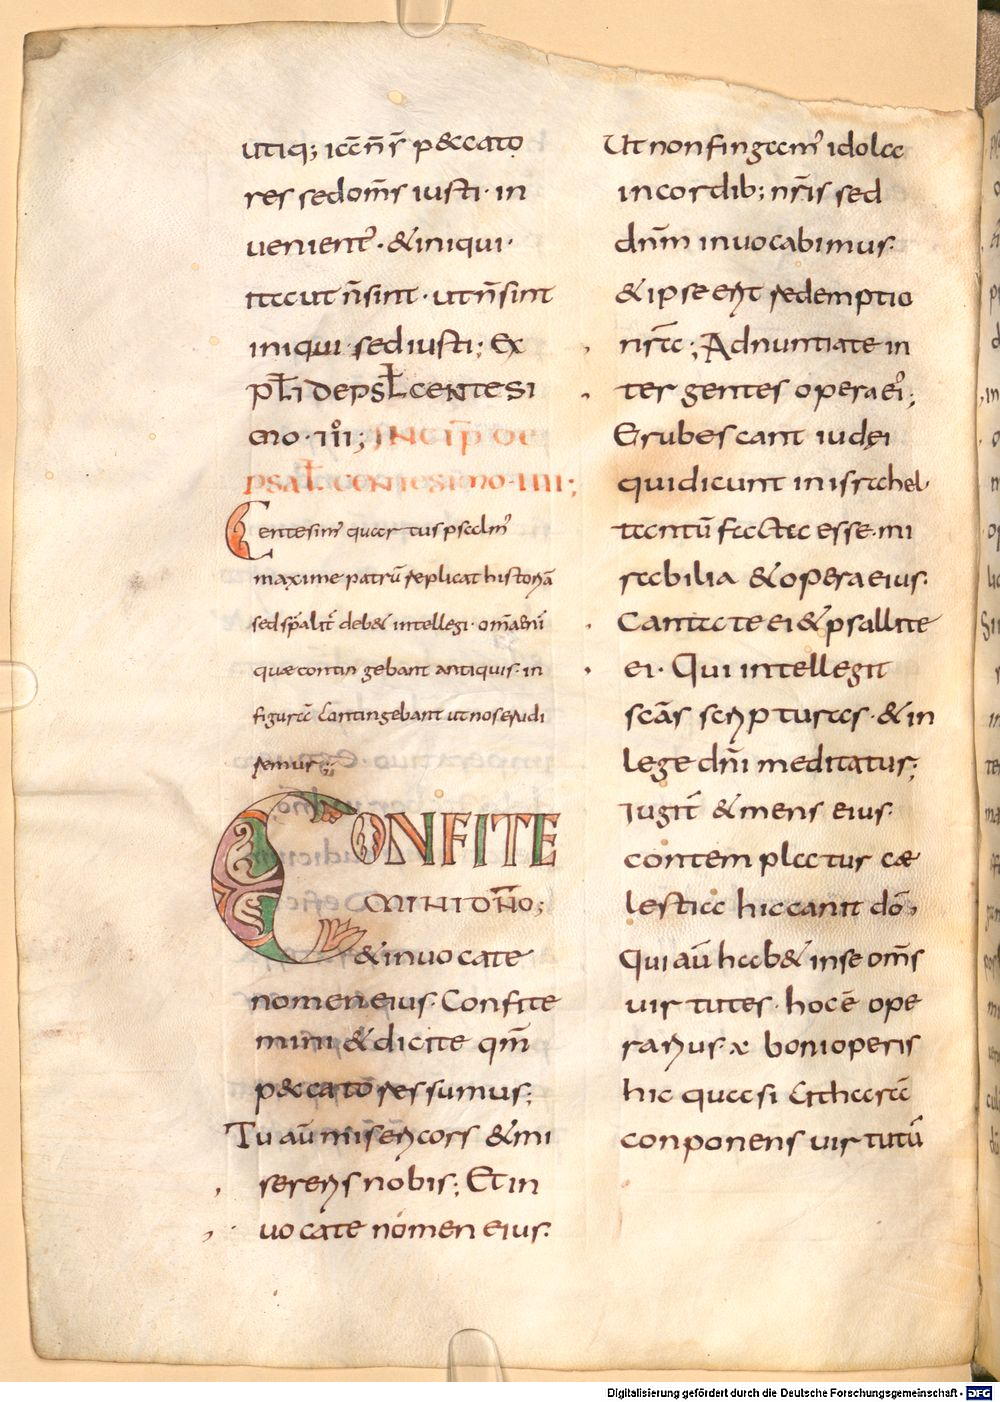 utiq; iā n̄ s̄ peccato
res sed om̄s iusti· in
uenient᷒· & iniqui·
ita ut n̄ sint· ut n̄ sint
iniqui· sed iusti; Ex
pl̄i de psl̄ centesi
mo· iii; INCIP̄ DE
psal̄. centesimo· iiii;
Centesim᷒ quartus psalm᷒
maxime patrū replicat historia
sed sp̄alit̄ deb& intellegi· om̄a eni
quæ contingebant antiquis· in
figurā contingebant ut nos erudi
remur;
CONFITE
MINI DN̄O;
& inuocate
nomen eius· Confite
mini & dicite qm̄
peccatores sumus;
Tu aū misericors & mi
sereris nobis; Et in
uocate nomen eius·
Ut non fingam᷒ idola
in cordib; nr̄is sed
dn̄m inuocabimus·
& ipse erit redemptio
nr̄a; Adnuntiate in
ter gentes opera ei᷒;
Erubescant iudei
qui dicunt in israhel·
tantū facta esse· mi
rabilia & opera eius·
Cantate ei & psallite
ei· Qui intellegit
scās scripturas· & in
lege dn̄i meditatur;
Iugit̄ & mens eius·
contemplatur cæ
lestia hic canit dō,
Qui aū hab& in se om̄s
uirtutes· hoc ē ope
rarius· boni operis
hic quasi citharā
conponens uirtutū
Digitalisierung gefördert durch die Deutsche Forschungsgemeinschaft - DFG